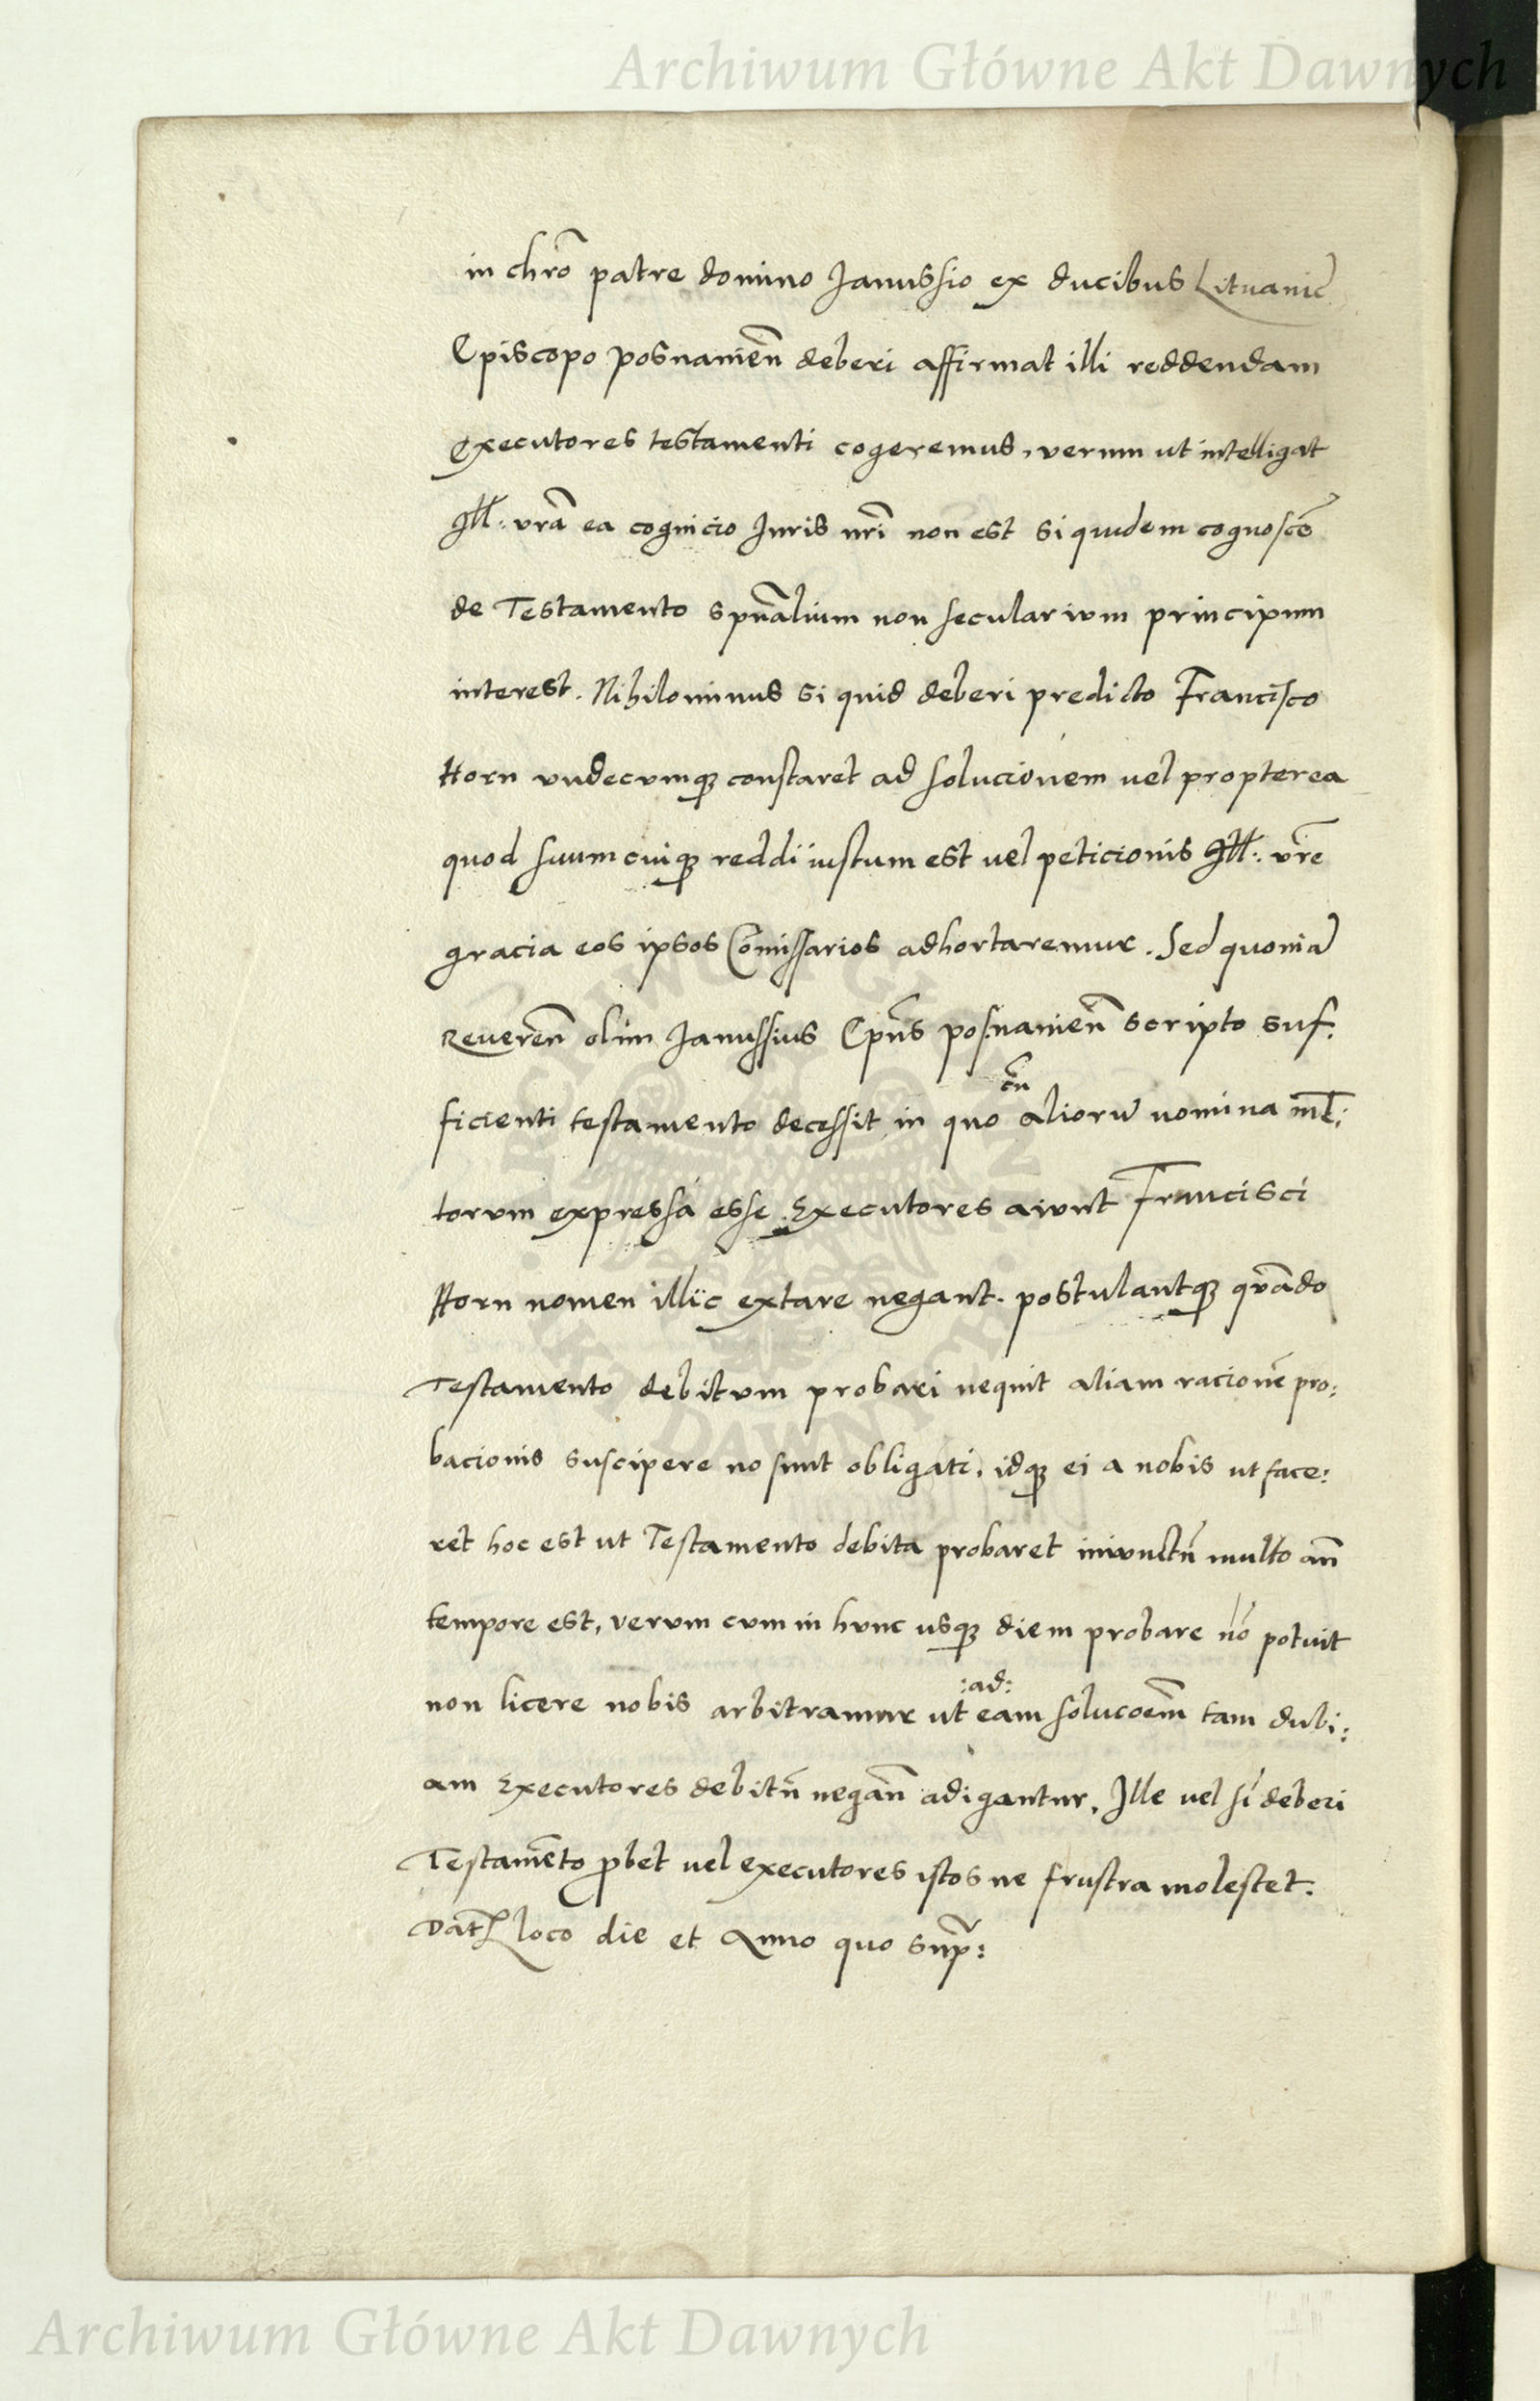 Archiwum Główne Akt Dawnych
in chrō patre domino Janussio ex ducibus Lituanie
Episcopo posnanien̄ deberi affirmat illi reddendam
executores testamenti cogeremus, verum ut intelligat
Ill: vrā ea cognicio Juris nr̄i non est si quidem cognoscē
de Testamento spūalium non secularium principum
interest. Nihilominus si quid deberi predicto Francisco
Horn undecumq; constaret ad solucionem vel propterea
quod suum cuiq; reddi iustum est vel peticionis Ill: vr̄e
gracia eos ipsos Com̄issarios adhortaremur. Sed quoniā
Reueren̄ olim Janussius Epūs posnanien̄ scripto suf:
ficienti testamento decessit in quo
cū
aliorū nomina ml̄:
torum expressa esse executores aiunt Francisci
Horn nomen illic extare negant. postulantq; qn̄ādo
Testamento debitum probari nequit aliam racionē pro:
bacionis suscipere no sunt obligati, idq; ei a nobis ut face:
ret hoc est ut Testamento debita probaret iniunctū multo an̄
tempore est, verum cum in hunc usq; diem probare nō potuit
:ad:
non licere nobis arbitramur ut eam solucoēm tam dubi:
am executores debitū negan̄ adigantur, Ille vel si deberi
Testamēto ꝓbet vel executores istos ne frustra molestet.
Dat loco die et Anno quo sup̄:
ARCHIWUM GŁÓWNE AKT DAWNYCH
Archiwum Główne Akt Dawnych